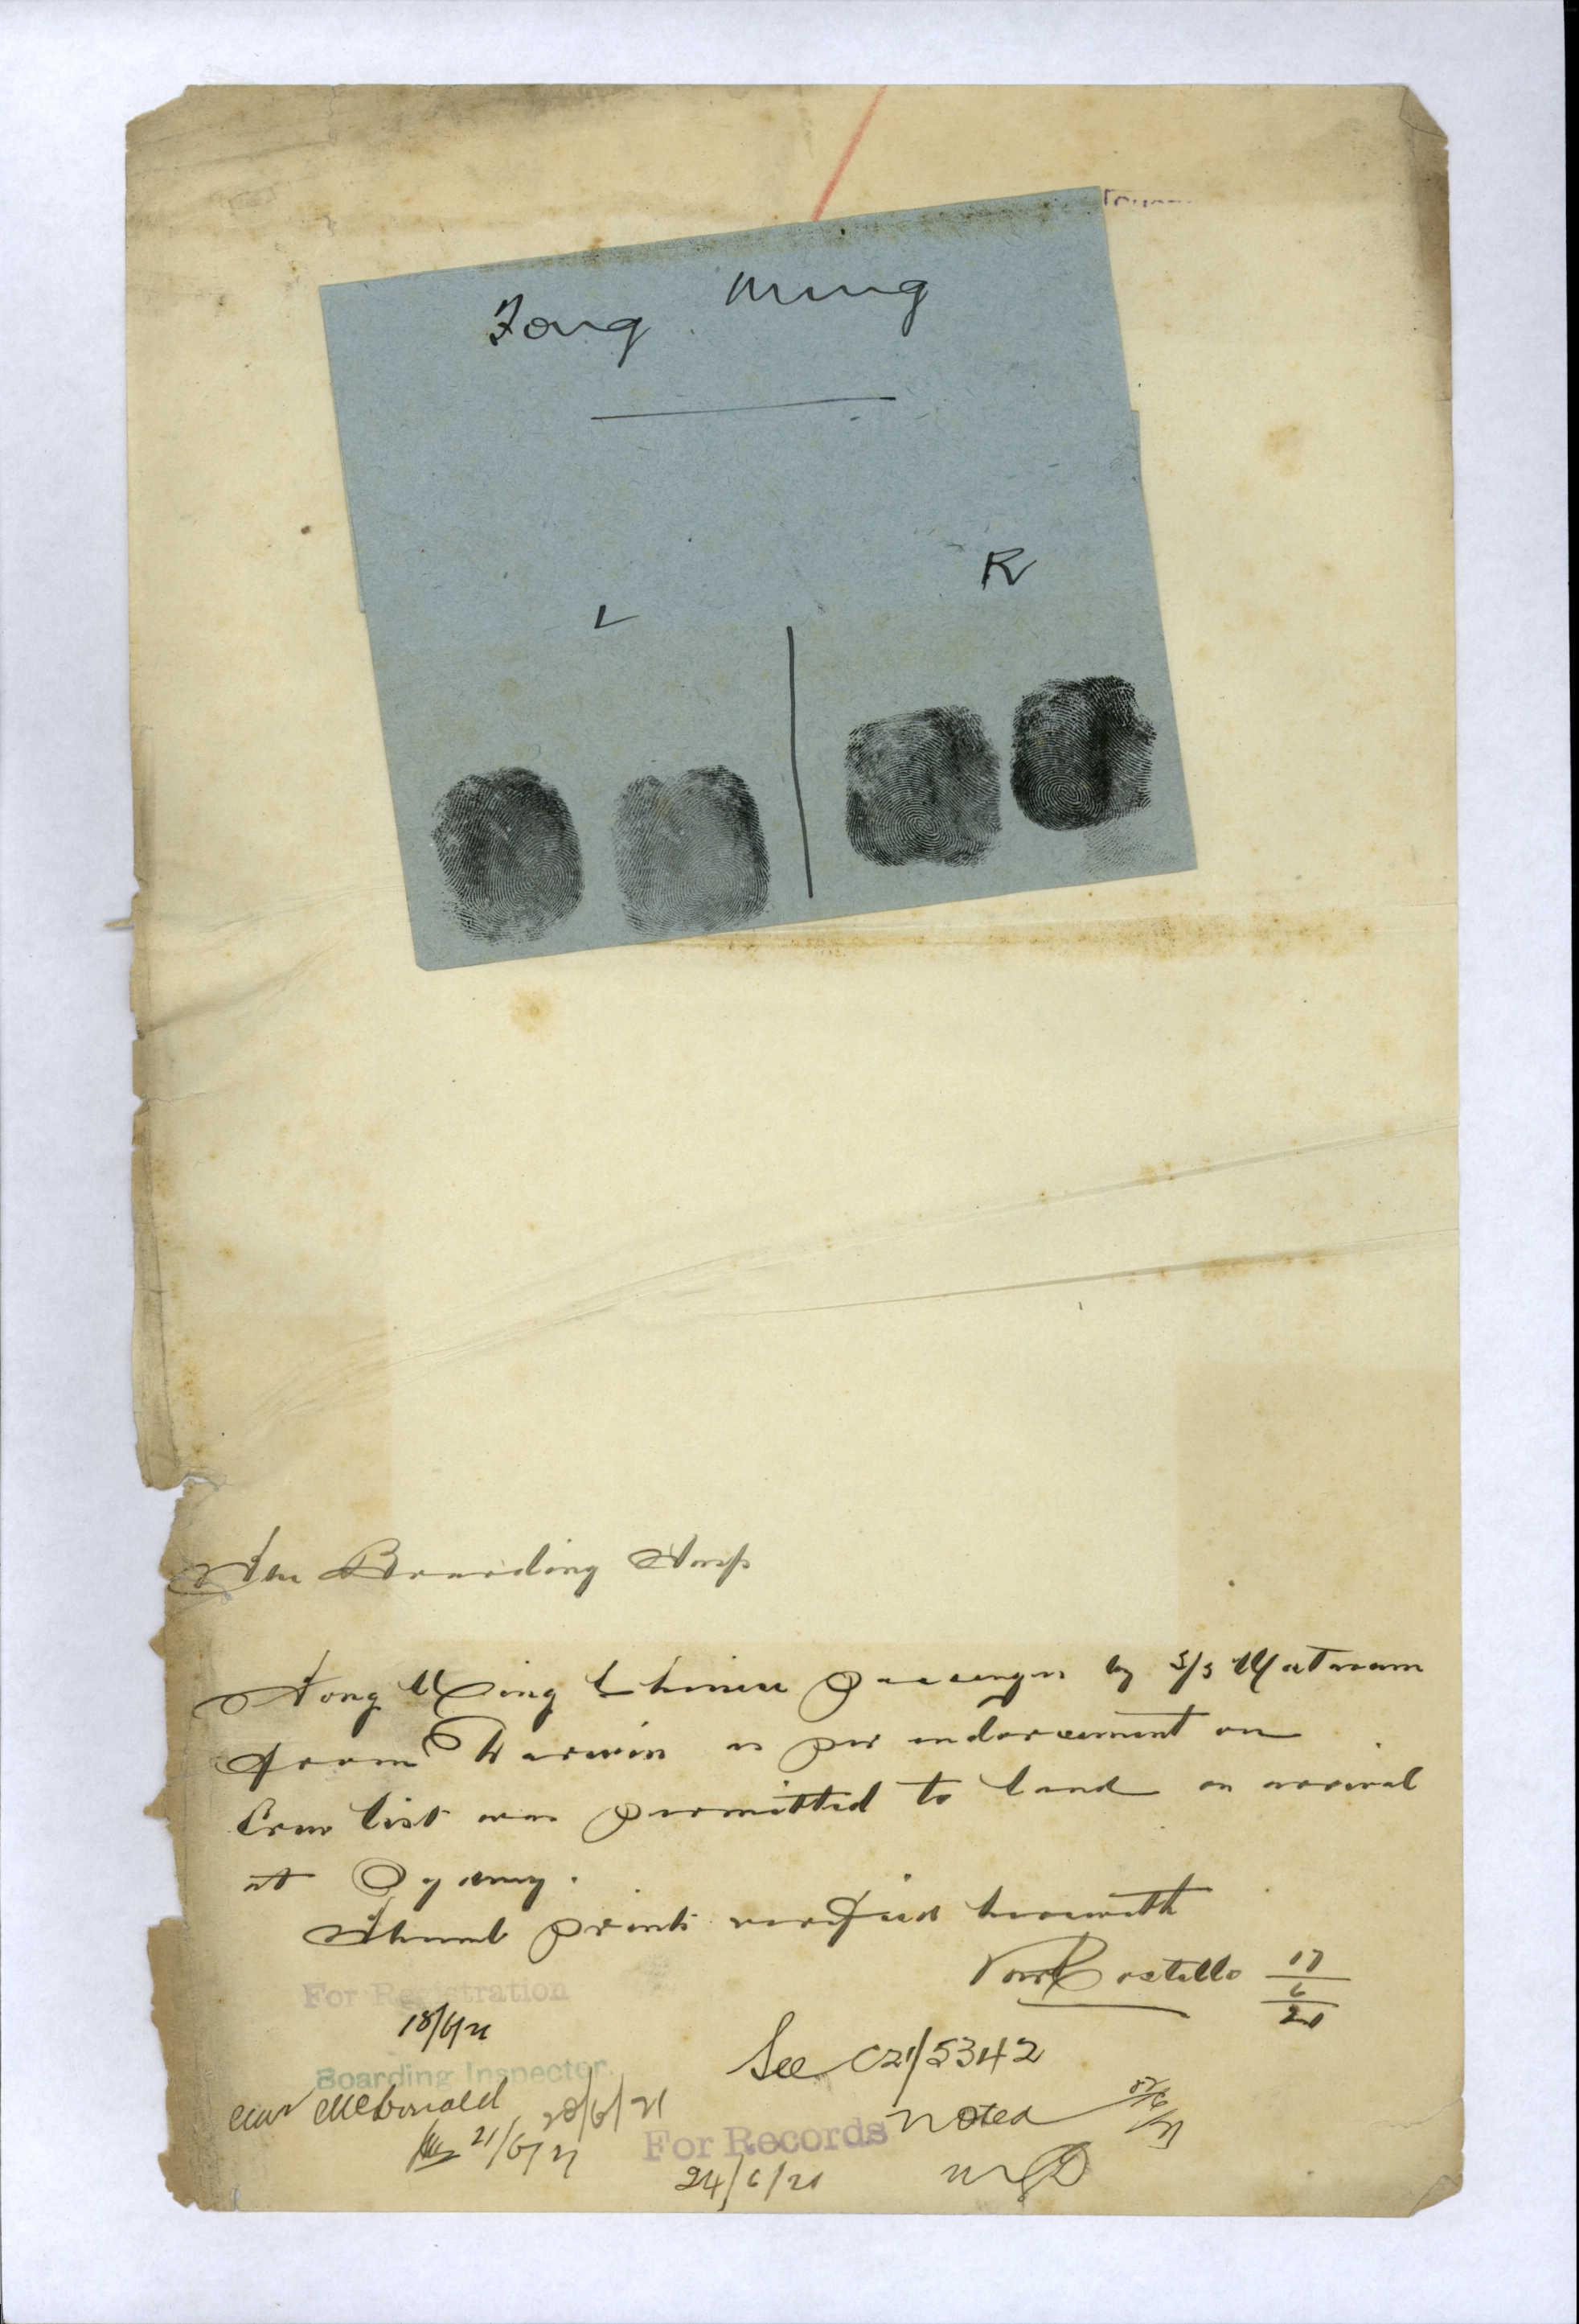 Fong Ming
L
R
The Boarding Insp
Fong Ming Chinese Passenger by S/S Mataram
from Darwin as per endorsement on
Crew list was permitted to land on arrival
at Sydney.
Thumb prints verified herewith
Costello 17/6/21
For Registration
18/6/21
See C21/5342
Boarding Inspector.
McDonald 20/6/21
Noted
21/6/21
For Records
24/6/21